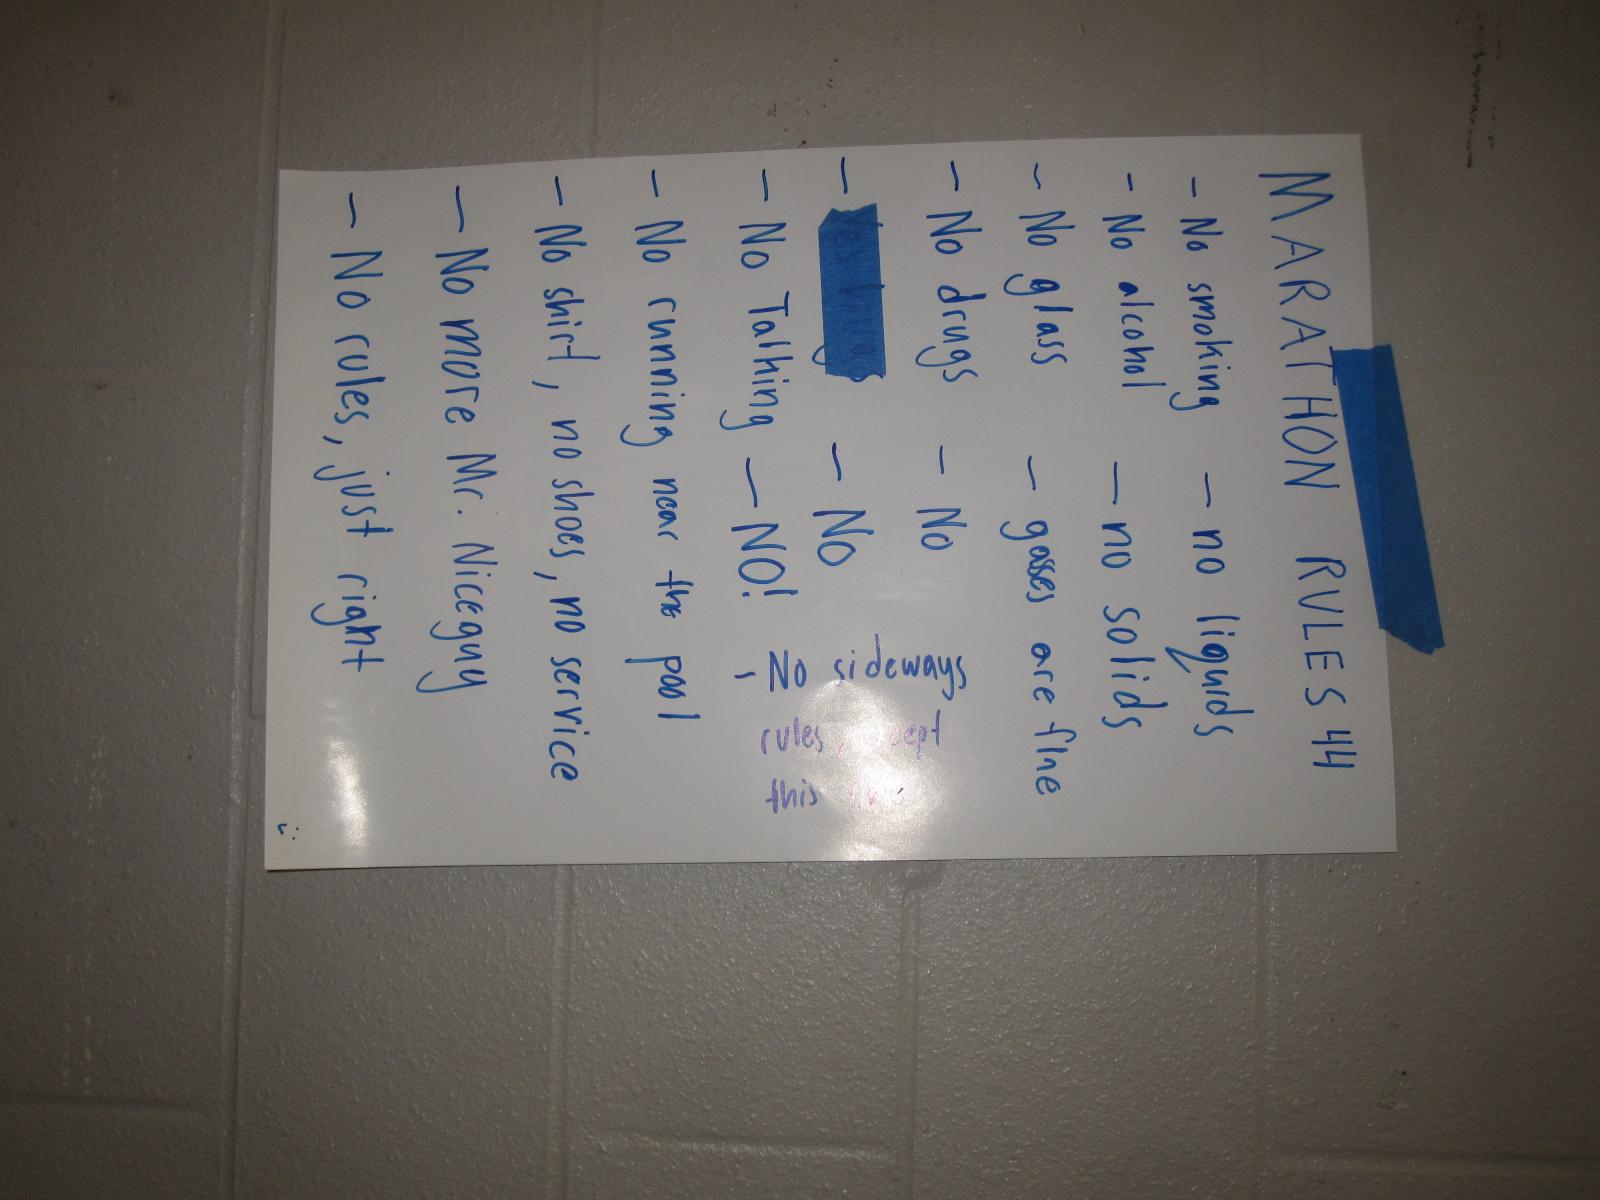 MARATHON RULES 44
- No smoking
- No alcohol
- No glass
- No drugs
-
- No Talking
- No running near the pool
- No shirt, no shoes, no service
- No more Mr. Niceguy
- No rules, just right
- no liquids
- no solids
- gasses are fine
- No
- No
- NO!
- No sideways
rules, except
this one
:)